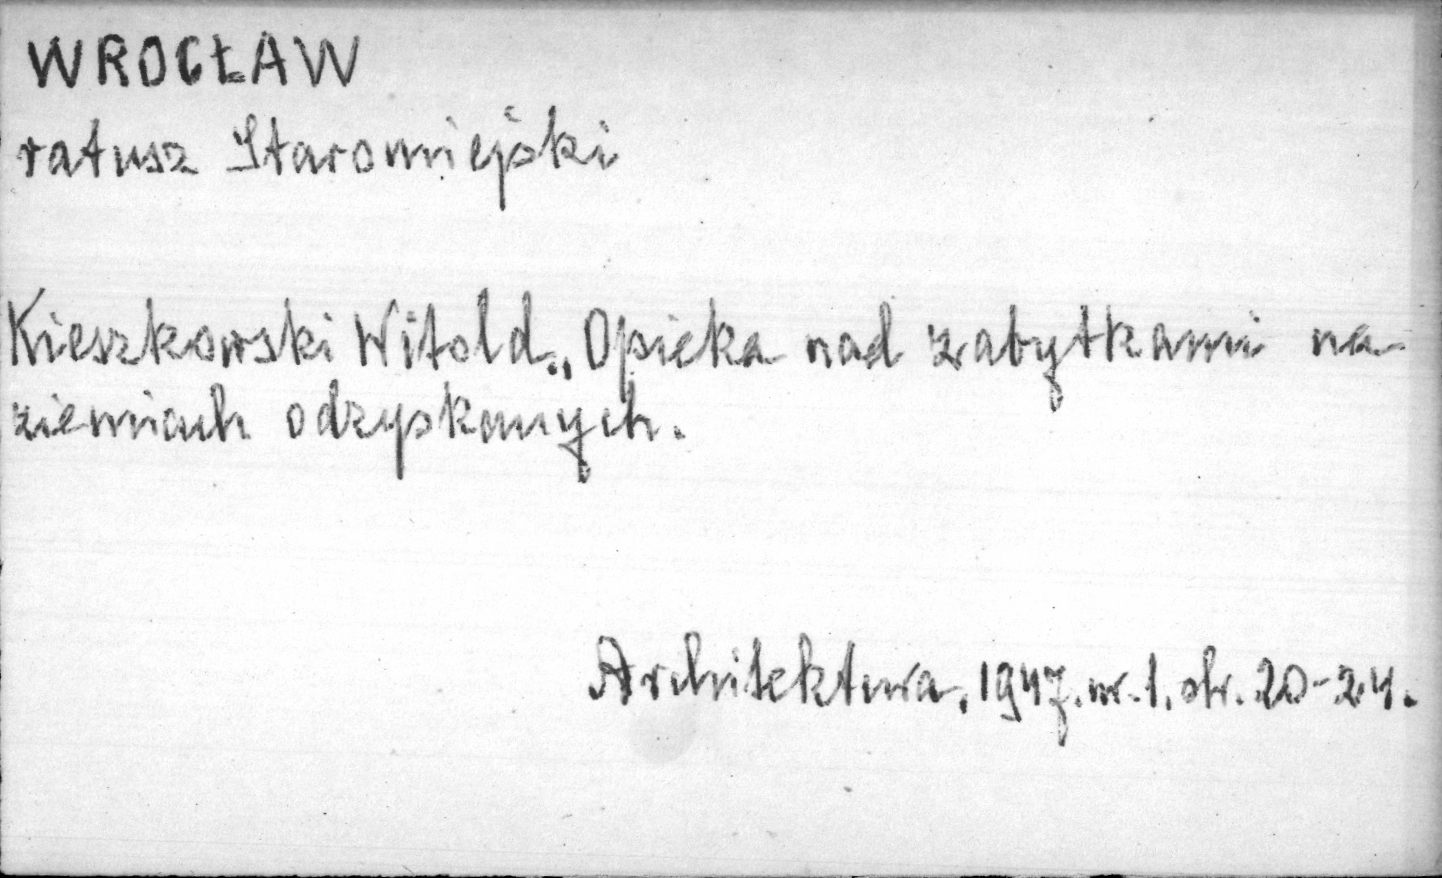 WROCŁAW
ratusz Staromiejski
Kieszkowski Witold., Opieka nad zabytkami na
ziemiach odzyskanych.
Architektura, 1947. nr. 1. str. 20-24.